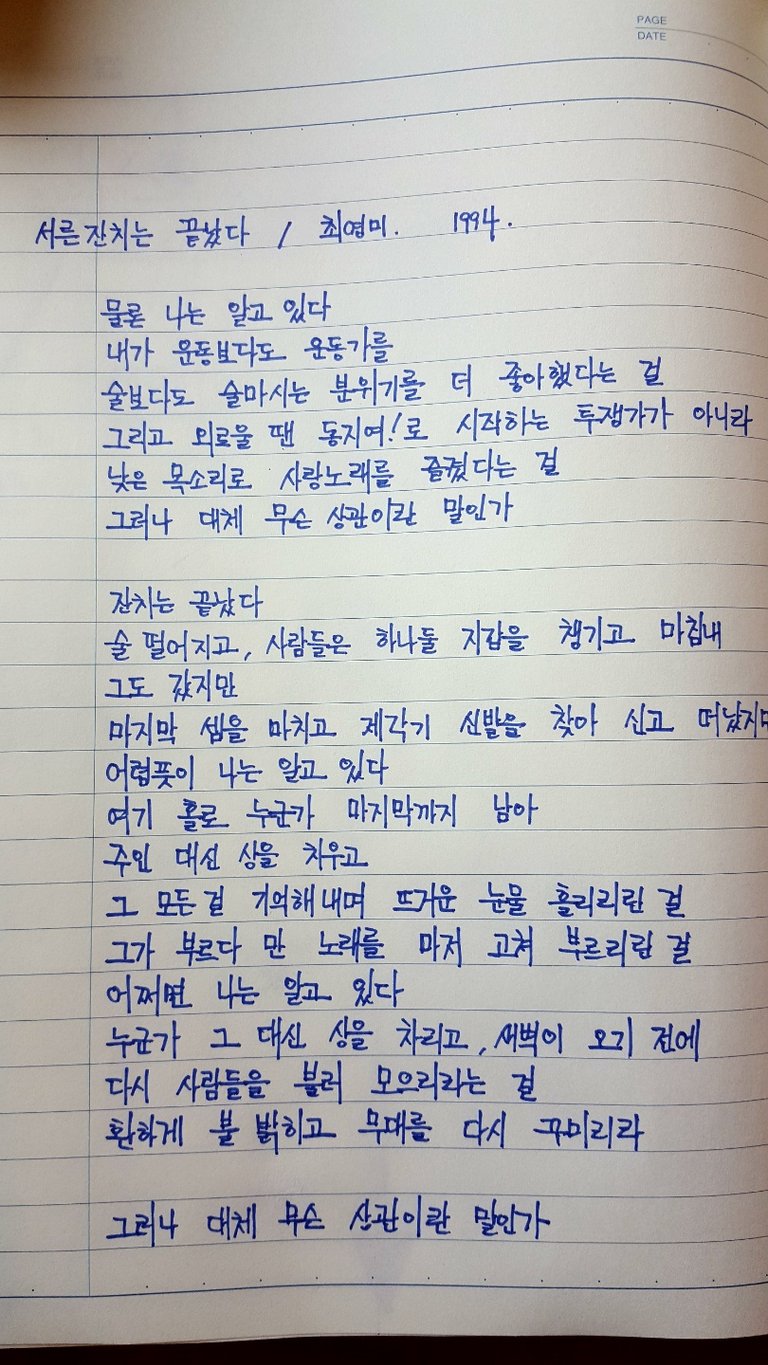 PAGE
DATE
서른 잔치는 끝났다 / 최영미. 1994.
물론 나는 알고 있다
내가 운동보다도 운동가를
술보다도 술마시는 분위기를 더 좋아했다는 걸
그리고 외로울 땐 동지여!로 시작하는 투쟁가가 아니라
낮은 목소리로 사랑노래를 즐겼다는 걸
그러나 대체 무슨 상관이란 말인가
잔치는 끝났다
술 떨어지고, 사람들은 하나둘 지갑을 챙기고 마침내
그도 갔지만
마지막 셈을 마치고 제각기 신발을 찾아 신고 떠났지만
어렴풋이 나는 알고 있다
여기 홀로 누군가 마지막까지 남아
주인 대신 상을 치우고
그 모든 걸 기억해내며 뜨거운 눈물 흘리리란 걸
그가 부르다 만 노래를 마저 고쳐 부르리란 걸
어쩌면 나는 알고 있다
누군가 그 대신 상을 차리고, 새벽이 오기 전에
다시 사람들을 불러 모으리라는 걸
환하게 불 밝히고 무대를 다시 꾸미리라
그러나 대체 무슨 상관이란 말인가